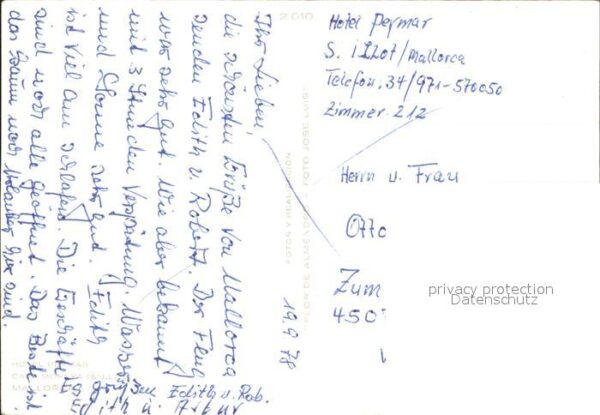 2 010
Ihr Lieben,
die schönsten Grüße von Mallorca
senden Edith u. Robert. Der Flug
war sehr gut. Wie aber bekannt
mit 3 Stunden Verspätung. Wasser
und Sonne sehr gut. Edith
ist viel am schlafen. Die Geschäfte
sind noch alle geöffnet. Das Beste ist
das kaum noch Urlauber hier sind.
Edith u. Rob.
19.9.78
FOTOS Y REALIZACION
"FLOR DE ALMENDRO" FOTO JOSE LUIS
MALLORCA
Hotel Permar
S. illot/Mallorca
Telefon. 34/971-570050
Zimmer 212
Herrn u. Frau
Otto
Zum
450
privacy protection
Datenschutz